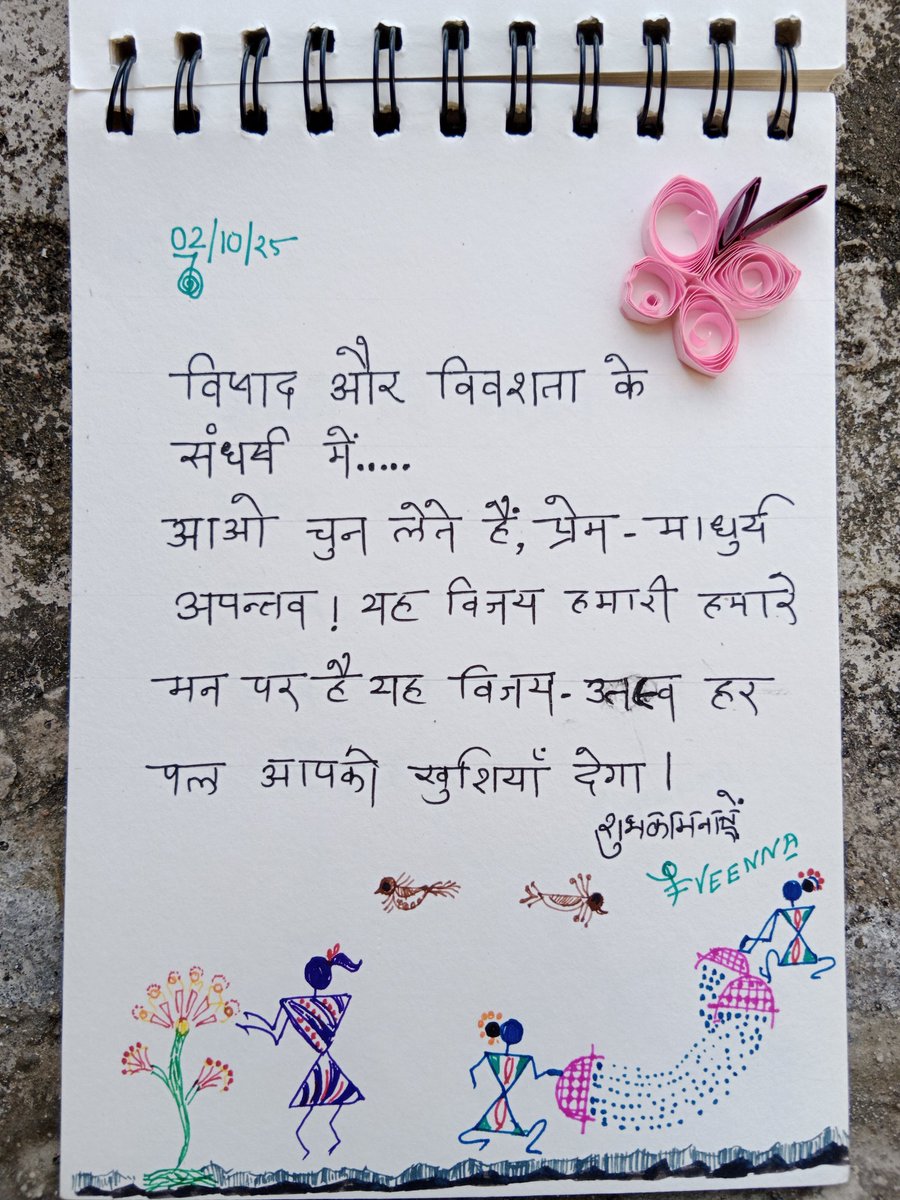 02/10/25
विषाद और विवशता के
संघर्ष में.....
आओ चुन लेते हैं, प्रेम - माधुर्य
अपन्तव ! यह विजय हमारी हमारे
मन पर है यह विजय - हर
पल आपको खुशियाँ देगा।
शुभकामनाएँ
VEENNA